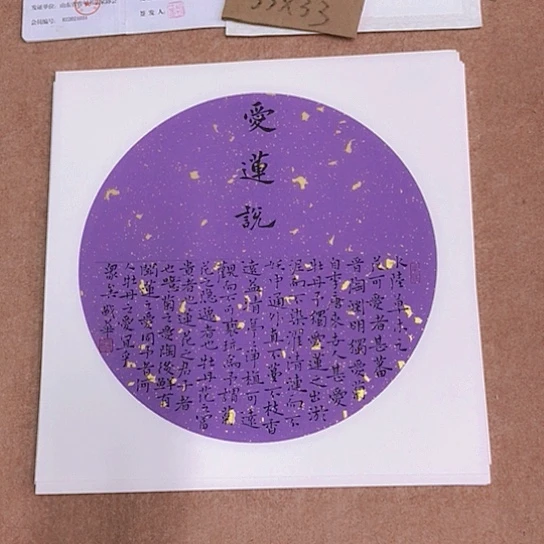 发证单位：山东
会员编号：
签发人：
33X33
愛蓮說
水陸草木之
花可愛者甚蕃
晉陶淵明獨愛菊
自李唐来世人甚愛
牡丹予獨愛蓮之出於
泥而不染濯清漣而不
妖中通外直不蔓不枝香
遠益清亭亭淨植可遠
觀而不可褻玩焉予謂菊
花之隱逸者也牡丹花之富
貴者也蓮花之君子者
也噫菊之愛陶後鮮有
聞蓮之愛同予者何
人牡丹之愛宜乎
眾矣